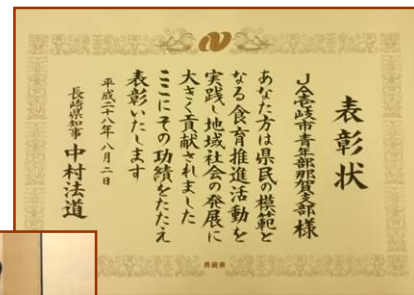 表彰状
JA壱岐市青年部那賀支部様
あなた方は県民の模範と
なる食育推進活動を
実践し地域社会の発展に
大きく貢献されました
ここにその功績をたたえ
表彰いたします
平成二十八年八月二日
長崎県知事 中村法道
長崎県